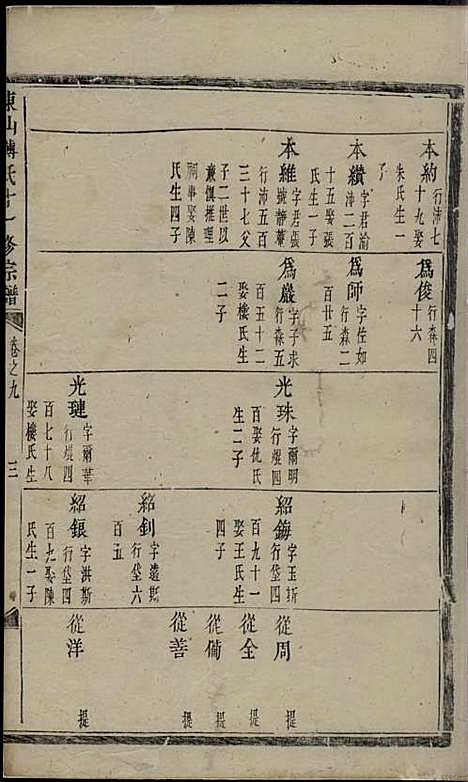 東山傅氏十一修宗譜
卷之九
三
本約
行沛七
十九娶
朱氏生一
子
本纘
字君渝
沛二百
十五娶張
氏生一子
本維
字君張
號靜菴
行沛五百
三十七父
子二世以
嚴慎摧理
祠事娶陳
氏生四子
爲俊
行森四
十六
爲師
字佐如
行森二
百廿五
爲巖
字子求
行森五
百五十二
娶樓氏生
二子
光珠
字爾明
行焜四
百娶仇氏
生二子
光璉
字爾華
行焜四
百七十八
娶樓氏生
紹鋂
字玉斯
行垈四
百九十一
娶王氏生
四子
紹釗
字遠斯
行垈六
百五
紹鋃
字洪斯
行垈四
百九娶陳
氏生一子
從周
提
從全
提
從備
提
從善
提
從洋
提